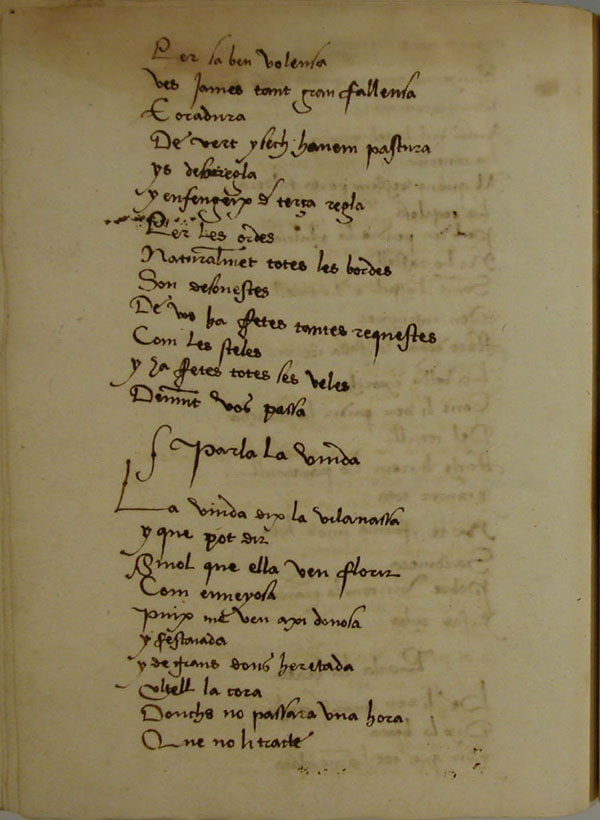 Per sa ben volensa
ves james tant gran fallensa
E oradura
De vert y sech havem pastura
ys desoregla
y enfengeix d terça regla
Per les ordes
Naturalmēt totes les bordes
Son desonestes
De vos ha ffetes tantes requestes
Com les steles
y ha ffetes totes ses veles
Denāt vos passa
Parla la viuda
La viuda dix la vilanassa
y que pot dir
Sinol que ella ven florir
Com enveyosa
Puix me ven axi donosa
y festeiada
y de grans dons heretada
la cora
Donchs no passara una hora
Que no li tracte